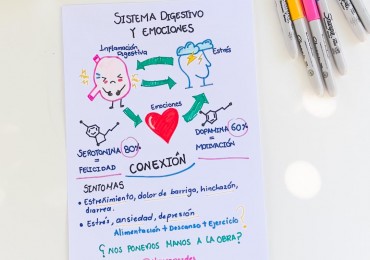 SISTEMA DIGESTIVO
Y EMOCIONES
Inflamación
Digestiva
Estrés
Emociones
SEROTONINA 80%
=
FELICIDAD
DOPAMINA 60%
=
MOTIVACIÓN
CONEXIÓN
SINTOMAS
• Estreñimiento, dolor de barriga, hinchazón,
diarrea.
• Estrés, ansiedad, depresión
Alimentación + Descanso + Ejercicio !
¿NOS PONEMOS MANOS A LA OBRA?
Sharpie